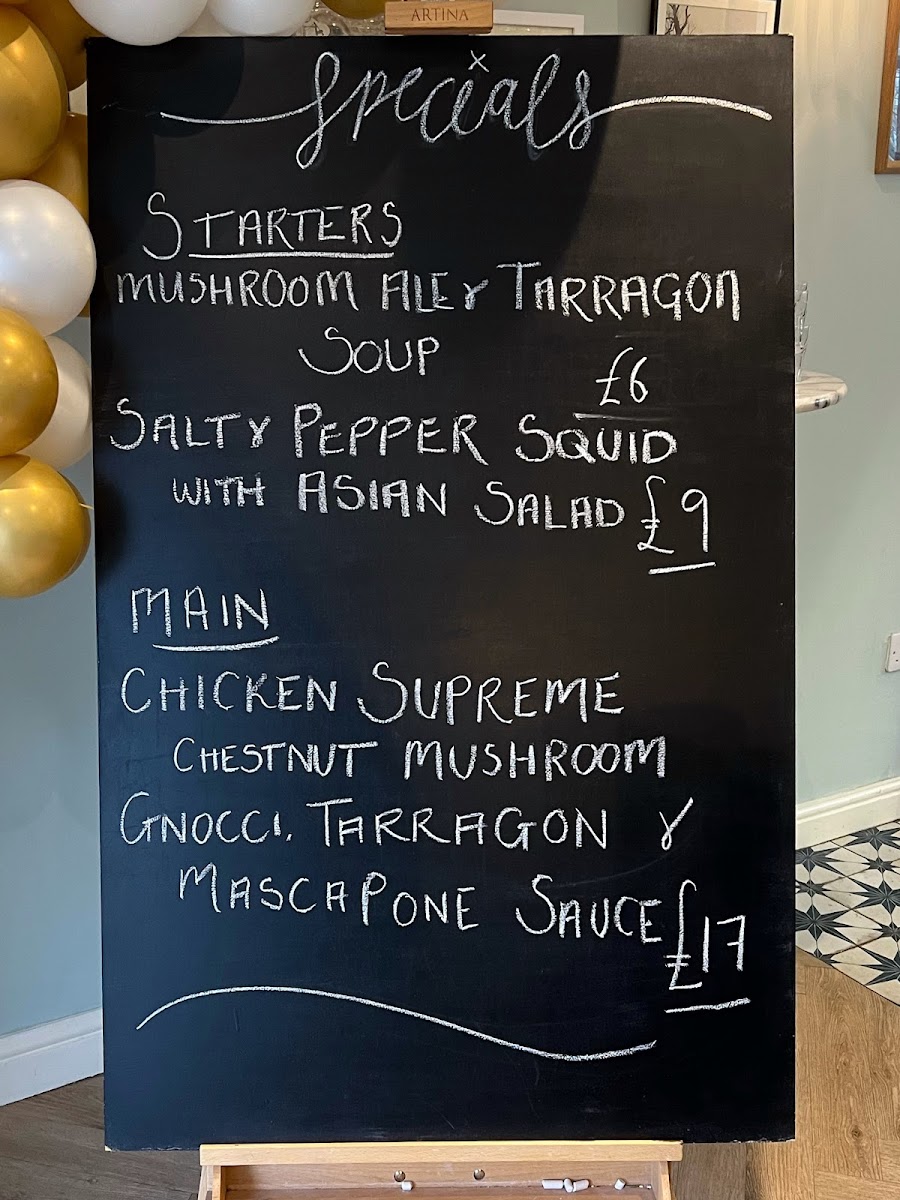 ARTINA
Specials
STARTERS
MUSHROOM ALE & TARRAGON
SOUP
£6
SALTY PEPPER SQUID
WITH ASIAN SALAD £9
MAIN
CHICKEN SUPREME
CHESTNUT MUSHROOM
GNOCCI, TARRAGON &
MASCAPONE SAUCE £17